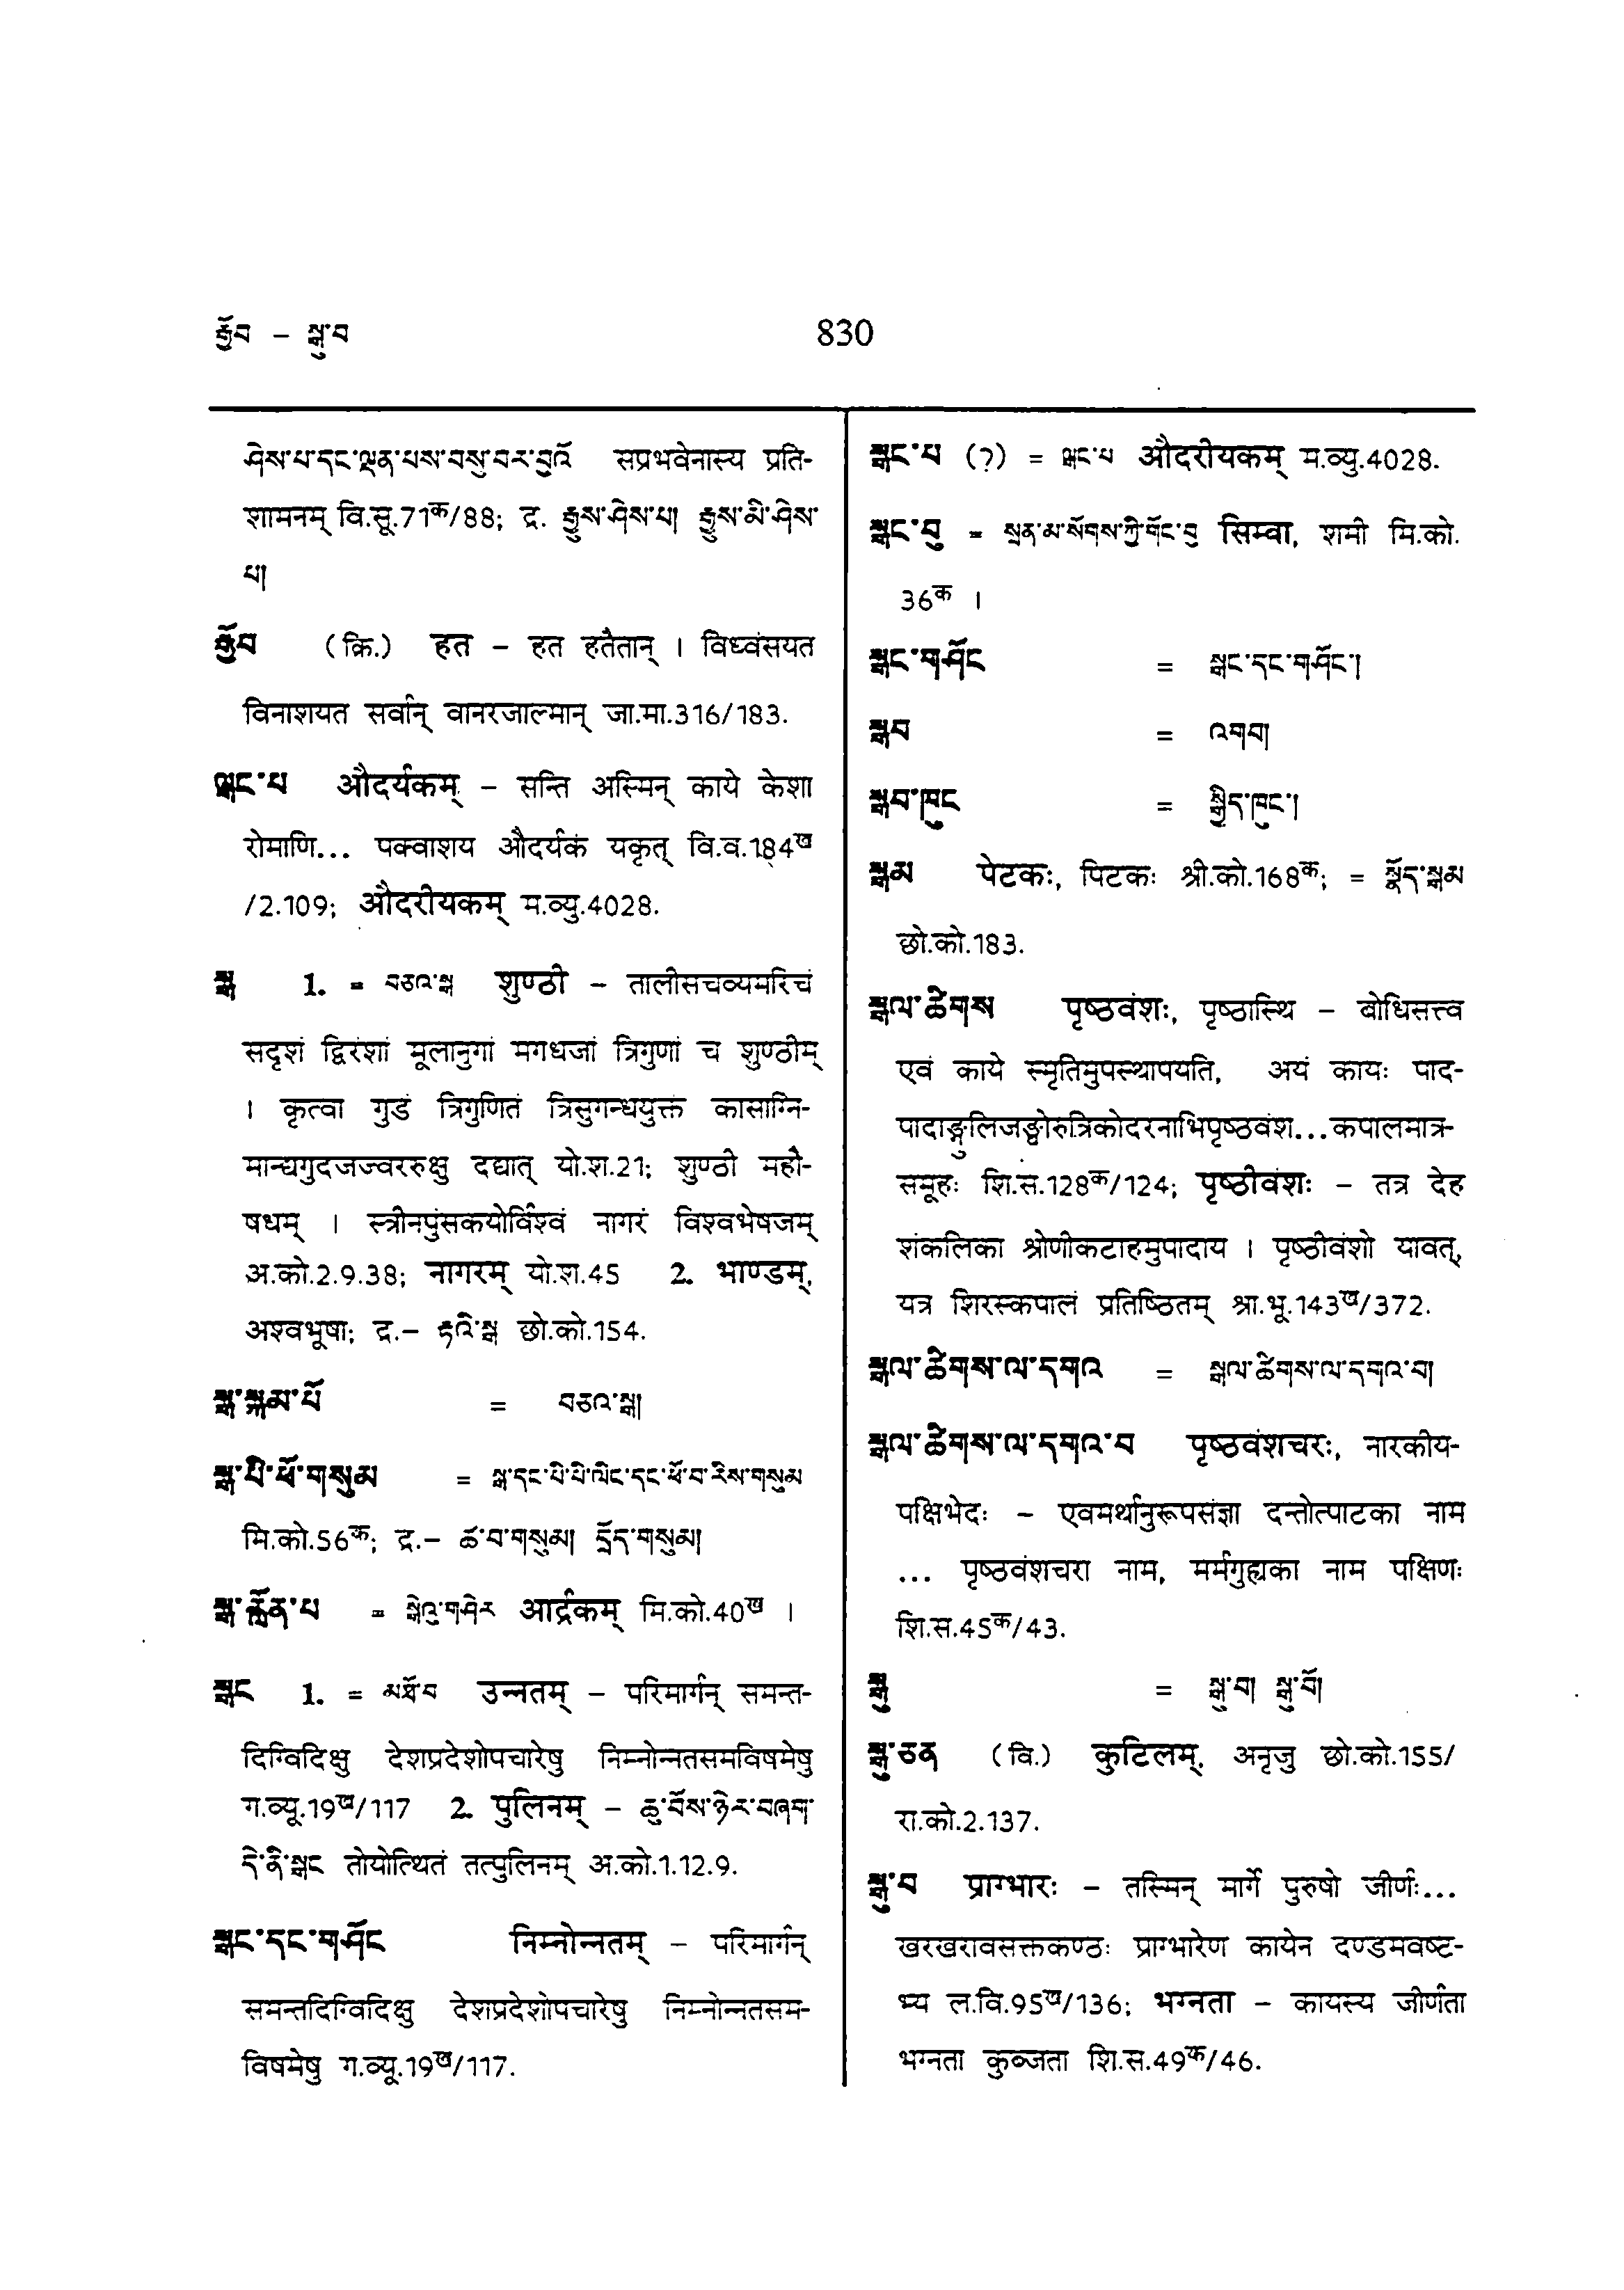 རྒྱོབ – སྒུ་བ
830
ཤེས་པ་དང་ལྡན་པས་བསུ་བར་བྱའོ सप्रभवेनास्य प्रति-
शामनम् वि.सू.71क/88; द्र. རྒྱུས་ཤེས་པ། རྒྱུས་མི་ཤེས་
པ།
རྒྱོབ (क्रि.) हत – हत हतैतान् । विध्वंसयत
विनाशयत सर्वान् वानरजाल्मान् जा.मा.316/183.
ལྒང་པ औदर्यकम् – सन्ति अस्मिन् काये केशा
रोमाणि... पक्वाशय औदर्यकं यकृत् वि.व.184ख
/2.109; औदरीयकम् म.व्यु.4028.
སྒ 1. = བཅའ་སྒ शुण्ठी – तालीसचव्यमरिचं
सदृशं द्विरंशां मूलानुगां मगधजां त्रिगुणां च शुण्ठीम्
। कृत्वा गुडं त्रिगुणितं त्रिसुगन्धयुक्तं कासाग्नि-
मान्द्यगुदजज्वररुक्षु दद्यात् यो.श.21; शुण्ठी महौ-
षधम् । स्त्रीनपुंसकयोर्विश्वं नागरं विश्वभेषजम्
अ.को.2.9.38; नागरम् यो.श.45 2. भाण्डम्,
अश्वभूषा; द्र.– རྟའི་སྒ छो.को.154.
སྒ་སྐམ་པོ = བཅའ་སྒ།
སྒ་པི་ཕོ་གསུམ = སྒ་དང་པི་པི་ལིང་དང་ཕོ་བ་རིས་གསུམ
मि.को.56क; द्र.– ཚ་བ་གསུམ། དྲོད་གསུམ།
སྒ་རློན་པ = སྒེའུ་གཤེར आर्द्रकम् मि.को.40ख ।
སྒང 1. = མཐོ་བ उन्नतम् – परिमार्गन् समन्त-
दिग्विदिक्षु देशप्रदेशोपचारेषु निम्नोन्नतसमविषमेषु
ग.व्यू.19ख/117 2. पुलिनम् – ཆུ་བོས་ཉེར་བཞག་
དེ་ནི་སྒང तोयोत्थितं तत्पुलिनम् अ.को.1.12.9.
སྒང་དང་གཤོང निम्नोन्नतम् – परिमार्गन्
समन्तदिग्विदिक्षु देशप्रदेशोपचारेषु निम्नोन्नतसम-
विषमेषु ग.व्यू.19ख/117.
སྒང་པ (?) = ལྒང་པ औदरीयकम् म.व्यु.4028.
སྒང་བུ = སྲན་མ་སོགས་ཀྱི་གོང་བུ सिम्वा, शमी मि.को.
36क ।
སྒང་གཤོང = སྒང་དང་གཤོང་།
སྒབ = འགབ།
སྒབ་ཁུང = སྒྱིད་ཁུང་།
སྒམ पेटकः, पिटकः श्री.को.168क; = སྣོད་སྒམ
छो.को.183.
སྒལ་ཚིགས पृष्ठवंशः, पृष्ठास्थि – बोधिसत्त्व
एवं काये स्मृतिमुपस्थापयति, अयं कायः पाद-
पादाङ्गुलिजङ्घोरुत्रिकोदरनाभिपृष्ठवंश...कपालमात्र-
समूहः शि.स.128क/124; पृष्ठीवंशः – तत्र देह
शंकलिका श्रोणीकटाहमुपादाय । पृष्ठीवंशो यावत्,
यत्र शिरस्कपालं प्रतिष्ठितम् श्रा.भू.143ख/372.
སྒལ་ཚིགས་ལ་དགའ = སྒལ་ཚིགས་ལ་དགའ་བ།
སྒལ་ཚིགས་ལ་དགའ་བ पृष्ठवंशचरः, नारकीय-
पक्षिभेदः – एवमर्थानुरूपसंज्ञा दन्तोत्पाटका नाम
... पृष्ठवंशचरा नाम, मर्मगुह्यका नाम पक्षिणः
शि.स.45क/43.
སྒུ = སྒུ་བ། སྒུ་བོ།
སྒུ་ཅན (वि.) कुटिलम्, अनृजु छो.को.155/
रा.को.2.137.
སྒུ་བ प्राग्भारः – तस्मिन् मार्गे पुरुषो जीर्णः...
खरखरावसक्तकण्ठः प्राग्भारेण कायेन दण्डमवष्ट-
भ्य ल.वि.95ख/136; भग्नता – कायस्य जीर्णता
भग्नता कुब्जता शि.स.49क/46.